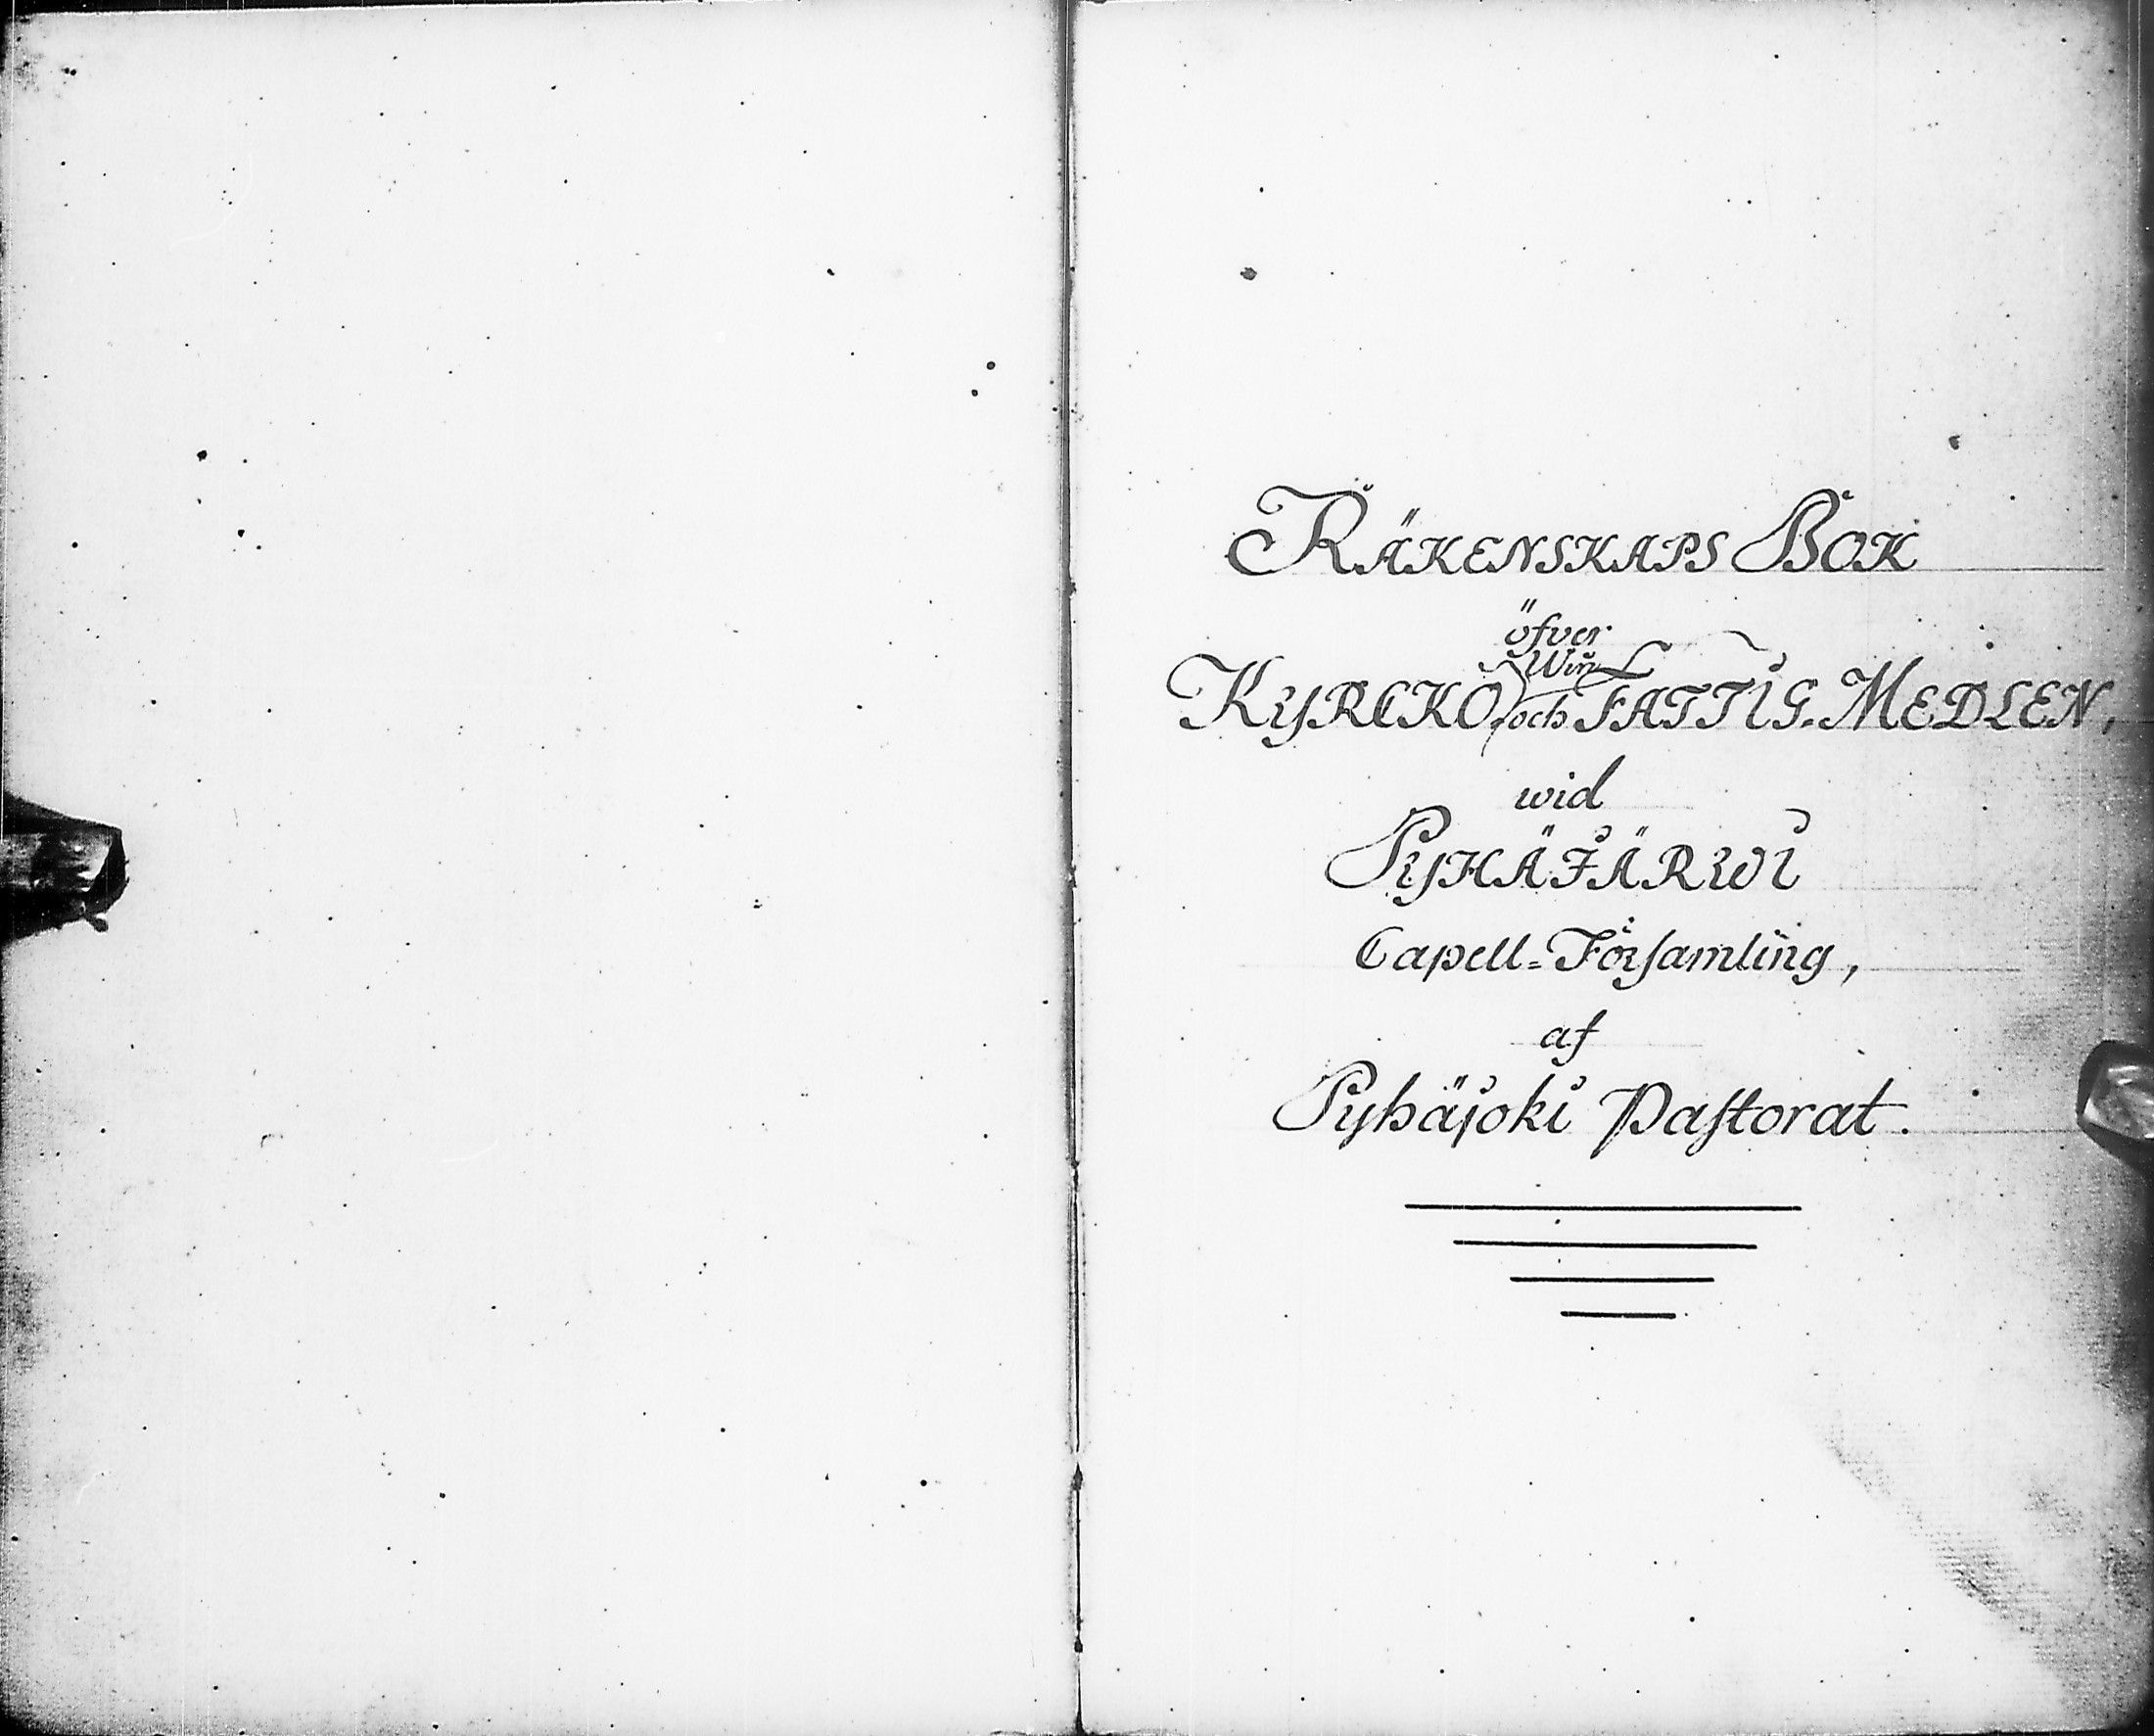 RÄKENSKAPS BOK
öfver
Win
KYRCKO, och FATTIG-MEDLEN,
wid
PYHÄJÄRWI
Capell-Församling,
af
Pyhäjoki Pastorat.